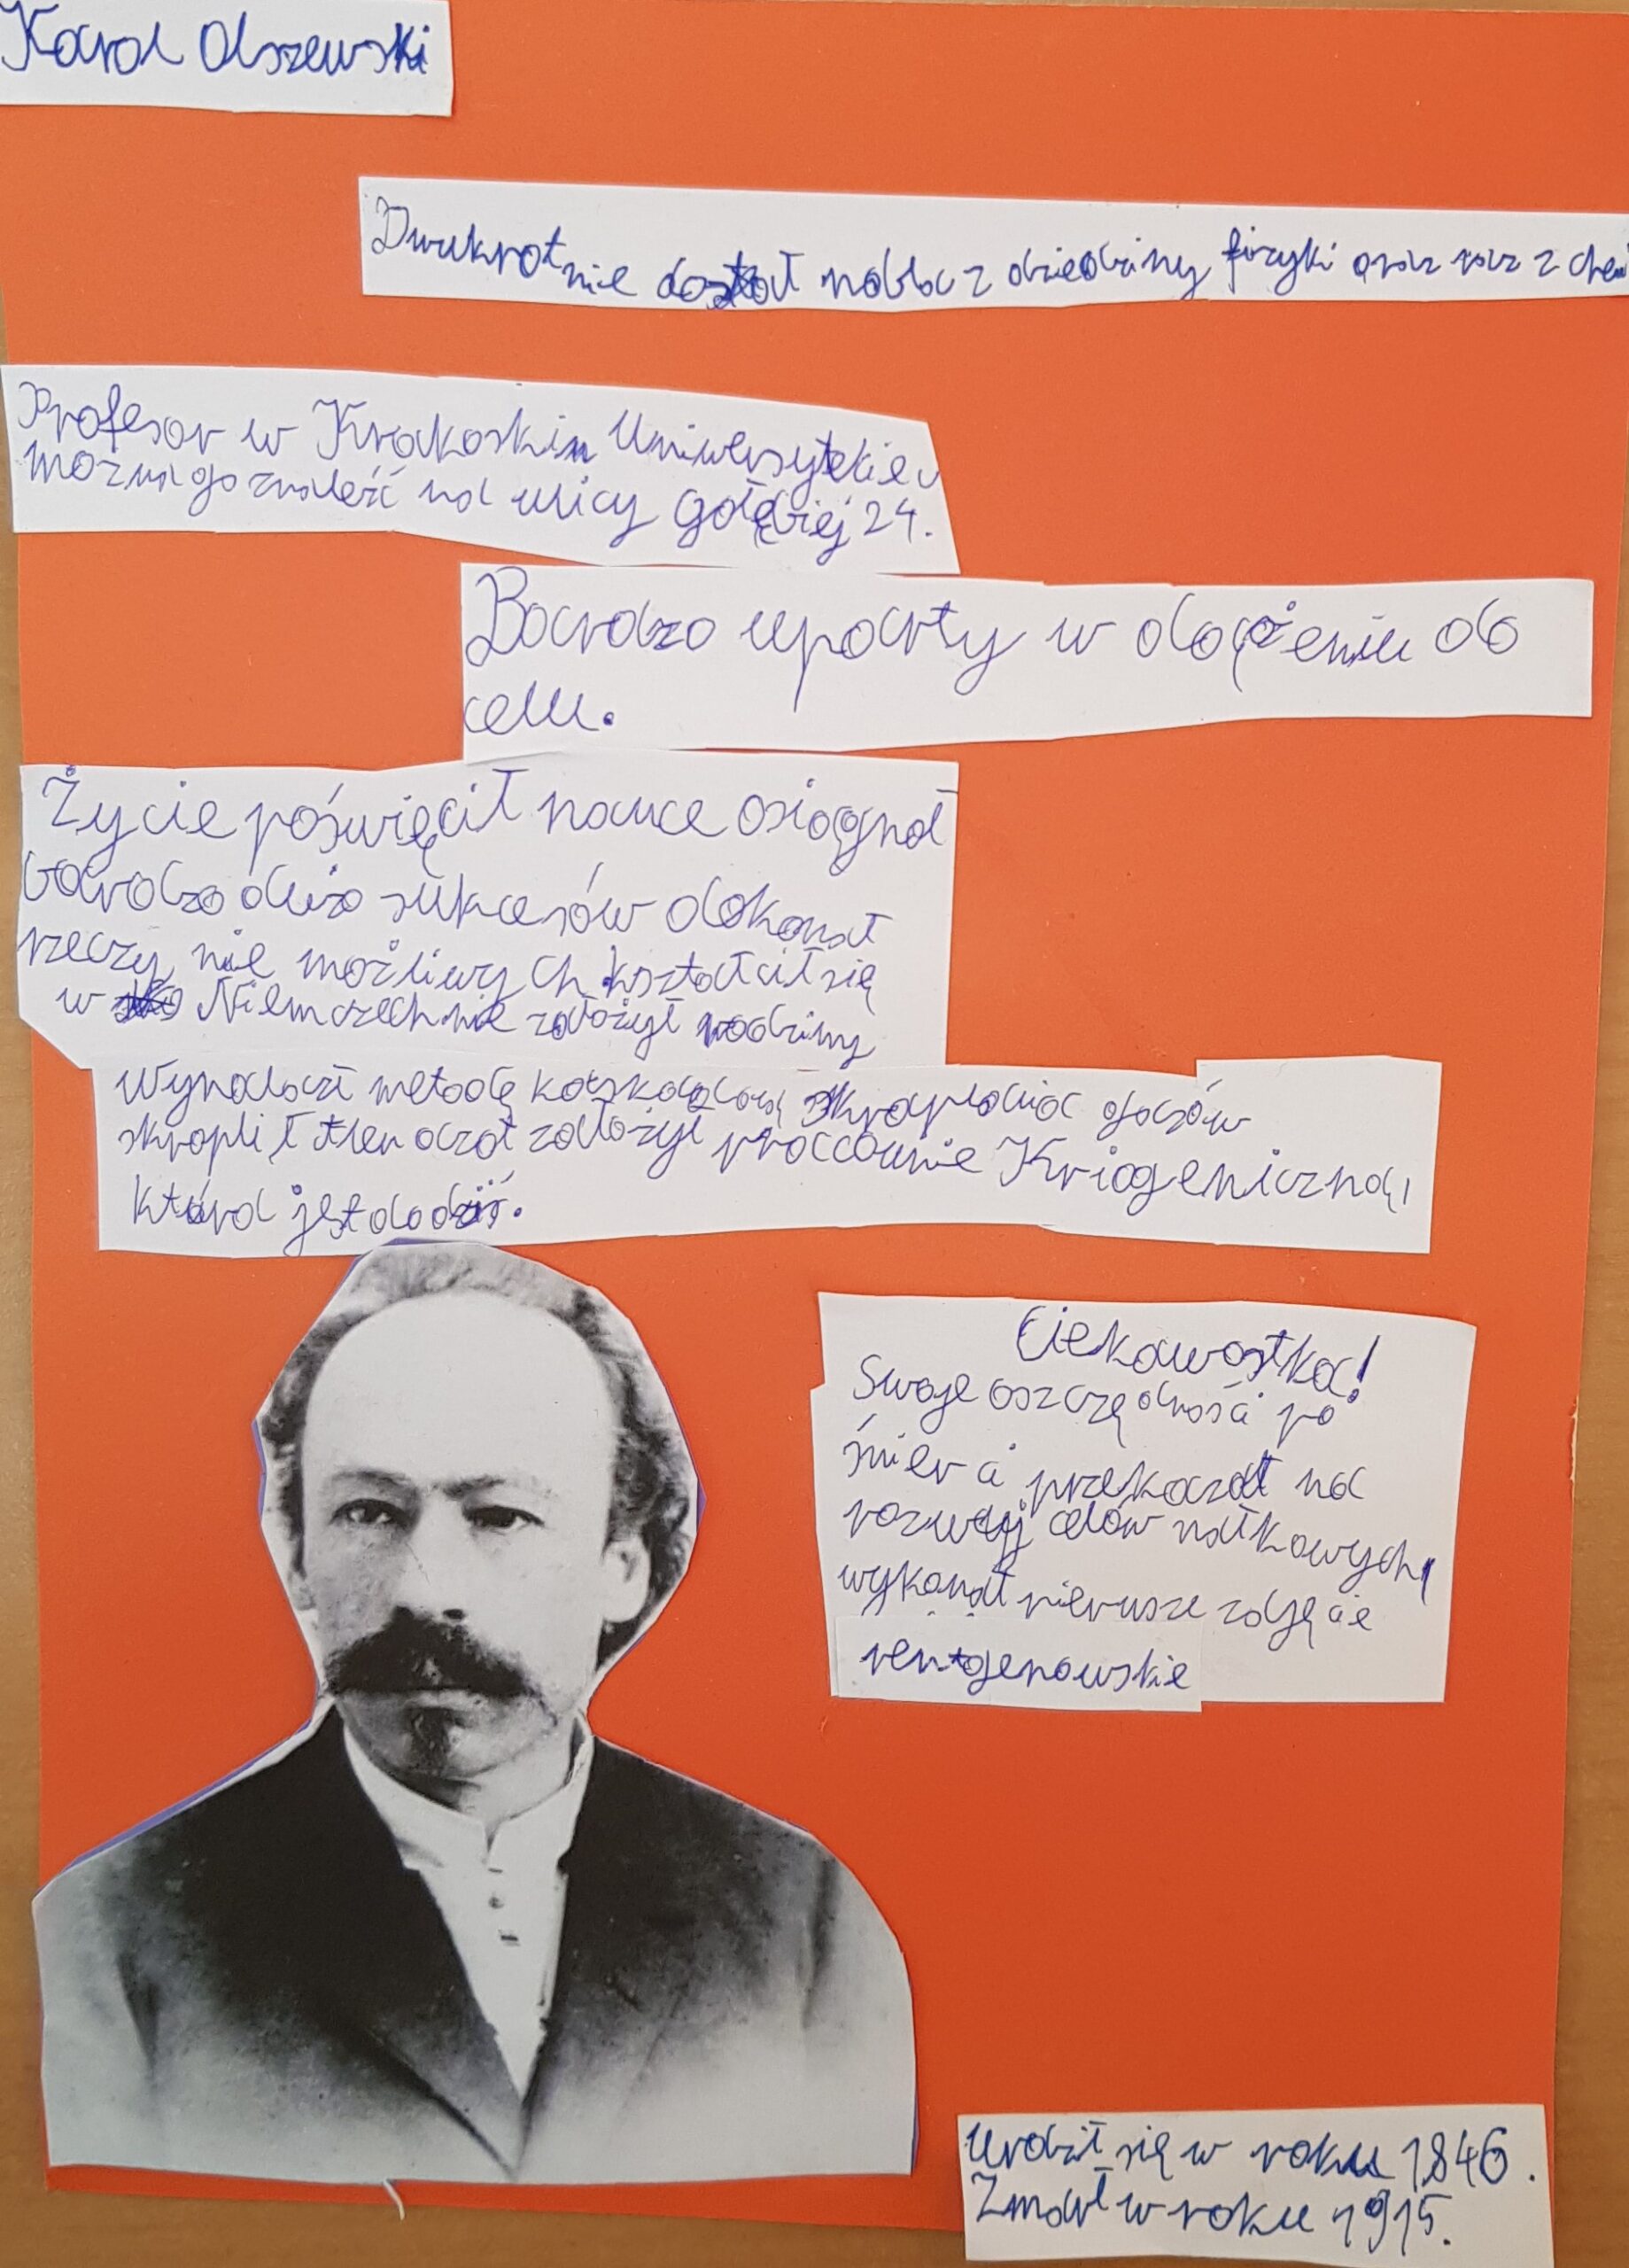 Karol Olszewski
Dwukrotnie dostał nobla z dziedziny fizyki oraz raz z chemi
Profesor w Krakoskim Uniwersytekie
można go znaleźć na ulicy Gołębiej 24.
Bardzo uparty w dążeniu do
celu.
Życie poświęcił nauce osiągnał
bardzo dużo sukcesów dokonał
rzeczy nie możliwych kształcił się
w Niemczech nie założył rodziny
Wynalazł metodę kaskadową skraplania gazów
skroplił tlen azot założył praccownie Kriogeniczną,
która jest do dziś.
Ciekawostka!
Swoje oszczędności po
śmierci przekazał na
rozwój celów naukowych,
wykonał pierwsze zdjęcie
rentgenowskie
Urodził się w roku 1846.
Zmarł w roku 1915.